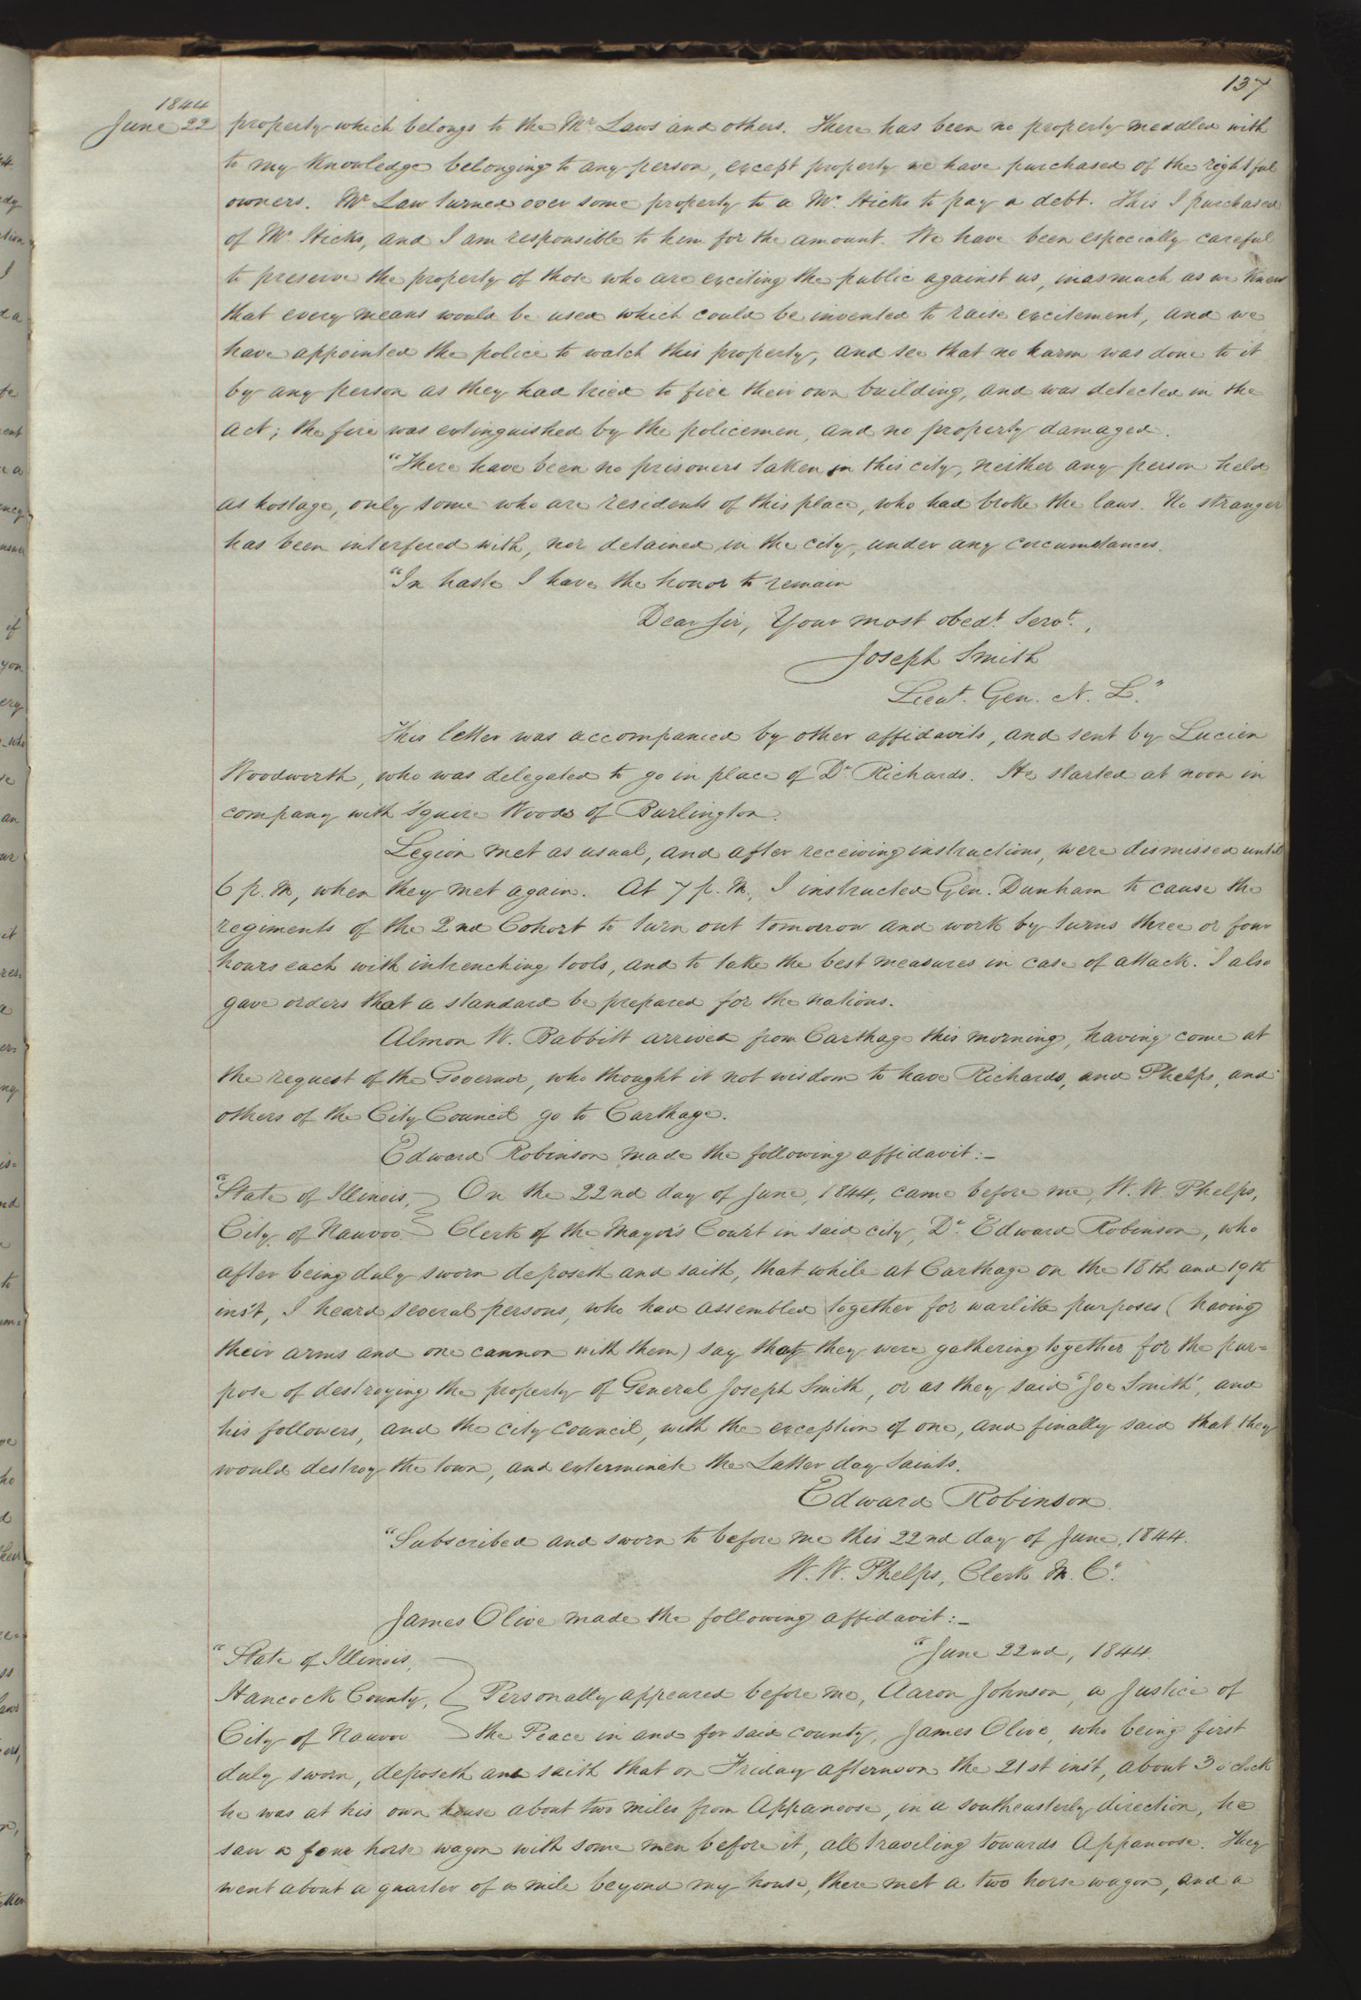 137
1844
June 22 property which belongs to the Mr. Laws and others. There has been no property meddled with
to my knowledge belonging to any person, except property we have purchased of the rightful
owners. Mr. Law turned over some property to a Mr. Hicks to pay a debt. This I purchased
of Mr. Hicks, and I am responsible to him for the amount. We have been especially careful
to preserve the property of those who are exciting the public against us, inasmuch as we knew
that every means would be used which could be invented to raise excitement, and we
have appointed the police to watch this property, and see that no harm was done to it
by any person as they had tried to fire their own building, and was detected in the
act; the fire was extinguished by the policemen, and no property damaged.
"There have been no prisoners taken in this city, neither any person held
as hostage, only some who are residents of this place, who had broke the laws. No stranger
has been interfered with, nor detained in the city, under any circumstances.
"In haste I have the honor to remain
Dear Sir, Your most obedt. Servt.,
Joseph Smith
Lieut. Gen. N. L."
This letter was accompanied by other affidavits, and sent by Lucien
Woodworth, who was delegated to go in place of Dr. Richards. He started at noon in
company with Squire Woods of Burlington.
Legion met as usual, and after receiving instructions, were dismissed until
6 p.m, when they met again. At 7 p.m., I instructed Gen. Dunham to cause the
regiments of the 2nd Cohort to turn out tomorrow and work by turns three or four
hours each with intrenching tools, and to take the best measures in case of attack. I also
gave orders that a standard be prepared for the nations.
Almon W. Babbitt arrived from Carthage this morning, having come at
the request of the Governor, who thought it not wisdom to have Richards, and Phelps, and
others of the City Council go to Carthage.
Edward Robinson made the following affidavit:—
"State of Illinois, } On the 22nd day of June, 1844, came before me, W. W. Phelps,
City of Nauvoo } Clerk of the Mayor's Court in said city, Dr. Edward Robinson, who
after being duly sworn deposeth and saith, that while at Carthage on the 18th and 19th
inst, I heard several persons, who had assembled together for warlike purposes (having
their arms and one cannon with them) say that they were gathering together for the pur=
pose of destroying the property of General Joseph Smith, or as they said "Joe Smith", and
his followers, and the city council, with the exception of one, and finally said that they
would destroy the town, and exterminate the Latter day Saints.
Edward Robinson
"Subscribed and sworn to before me this 22nd day of June, 1844.
W. W. Phelps, Clerk M. C."
James Olive made the following affidavit:—
"State of Illinois, "June 22nd, 1844.
Hancock County, } Personally appeared before me, Aaron Johnson, a Justice of
City of Nauvoo } the Peace in and for said county, James Olive, who being first
duly sworn, deposeth and saith that on Friday afternoon the 21st inst, about 3 o'clock
he was at his own house about two miles from Appanoose, in a southeasterly direction, he
saw a four horse wagon with some men before it, all traveling towards Appanoose. They
went about a quarter of a mile beyond my house, there met a two horse wagon, and a